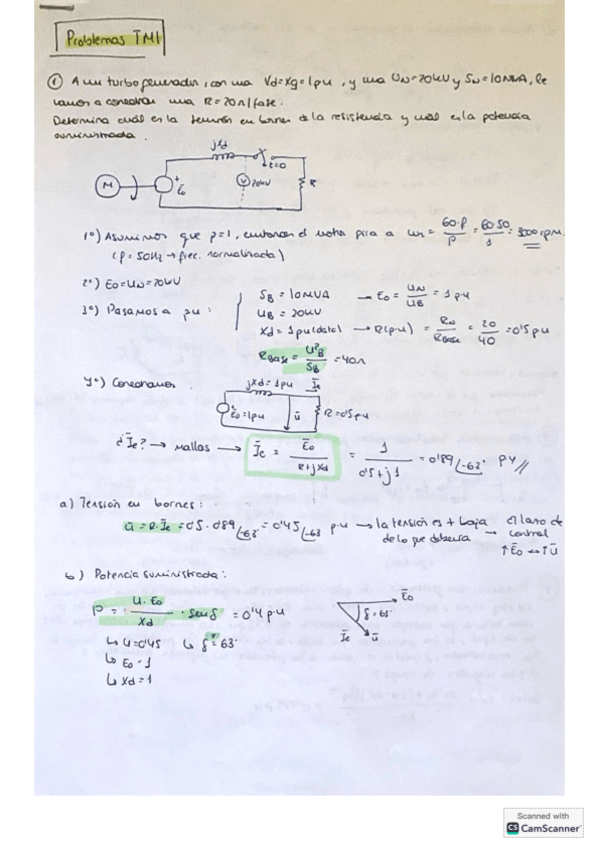 Problemas TM1
① A un turbogenerador, con una Xd=Xg=1pu, y una UN=20kV y SN=10MVA, le
vamos a conectar una R=20Ω/fase.
Determina cuál es la tensión en bornes de la resistencia y cuál es la potencia
suministrada.
jXd
M + E0 V 20kV t=0 R
1º) Asumimos que p=1, entonces el motor gira a = 60·f/p = 60·50/1 = 3000 rpm
(f=50Hz → frec. normalizada)
2º) E0=UN=20kV
3º) Pasamos a pu:
SB = 10MVA → E0 = UN/UB = 1 pu
UB = 20kV
Xd = 1pu (dato) → R(pu) = RN/RBase = 20/40 = 0'5 pu
RBase = U²B/SB = 40Ω
4º) Conectamos
jXd=1pu Ie
+ E0=1pu u R=0'5pu
¿Ie? → mallas → Ie = E0/(R+jXd) = 1/(0'5+j1) = 0'89 ∠-63° pu
a) Tensión en bornes:
u=R·Ie=0'5·0'89∠-63 = 0'45∠-63 p.u → la tensión es + baja → el lazo de
de lo que debería control
↑E0 ↔ ↑u
b) Potencia suministrada:
P = u·E0/Xd · senδ = 0'4 pu
↳ u=0'45 ↳ δ=63°
↳ E0=1
↳ Xd=1
E0
δ=63°
Ie u
Scanned with
CS CamScanner